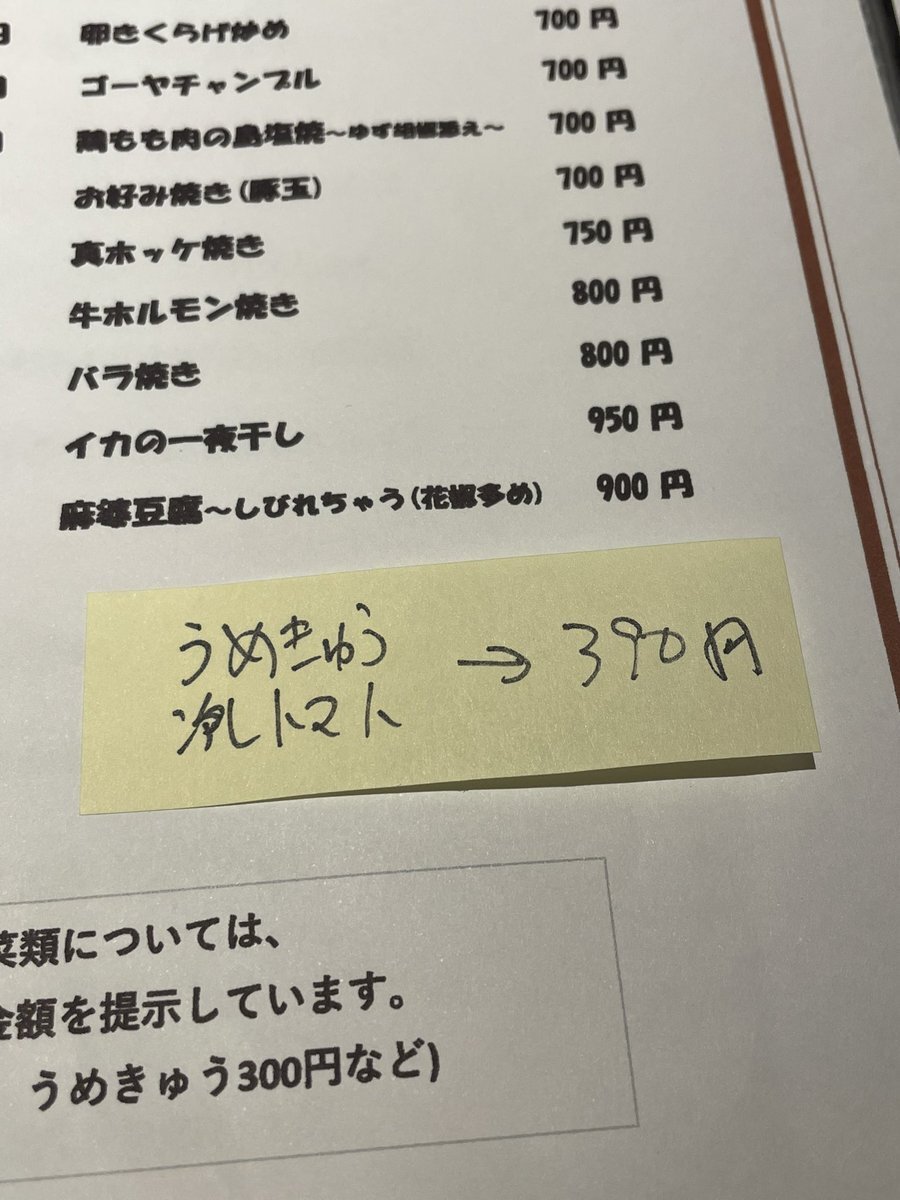 卵きくらげ炒め 700円
ゴーヤチャンプル 700円
鶏もも肉の島塩焼～ゆず胡椒添え～ 700円
お好み焼き(豚玉) 700円
真ホッケ焼き 750円
牛ホルモン焼き 800円
バラ焼き 800円
イカの一夜干し 950円
麻婆豆腐～しびれちゃう(花椒多め) 900円
うめきゅう → 390円
冷しトマト
菜類については、
金額を提示しています。
うめきゅう300円など)